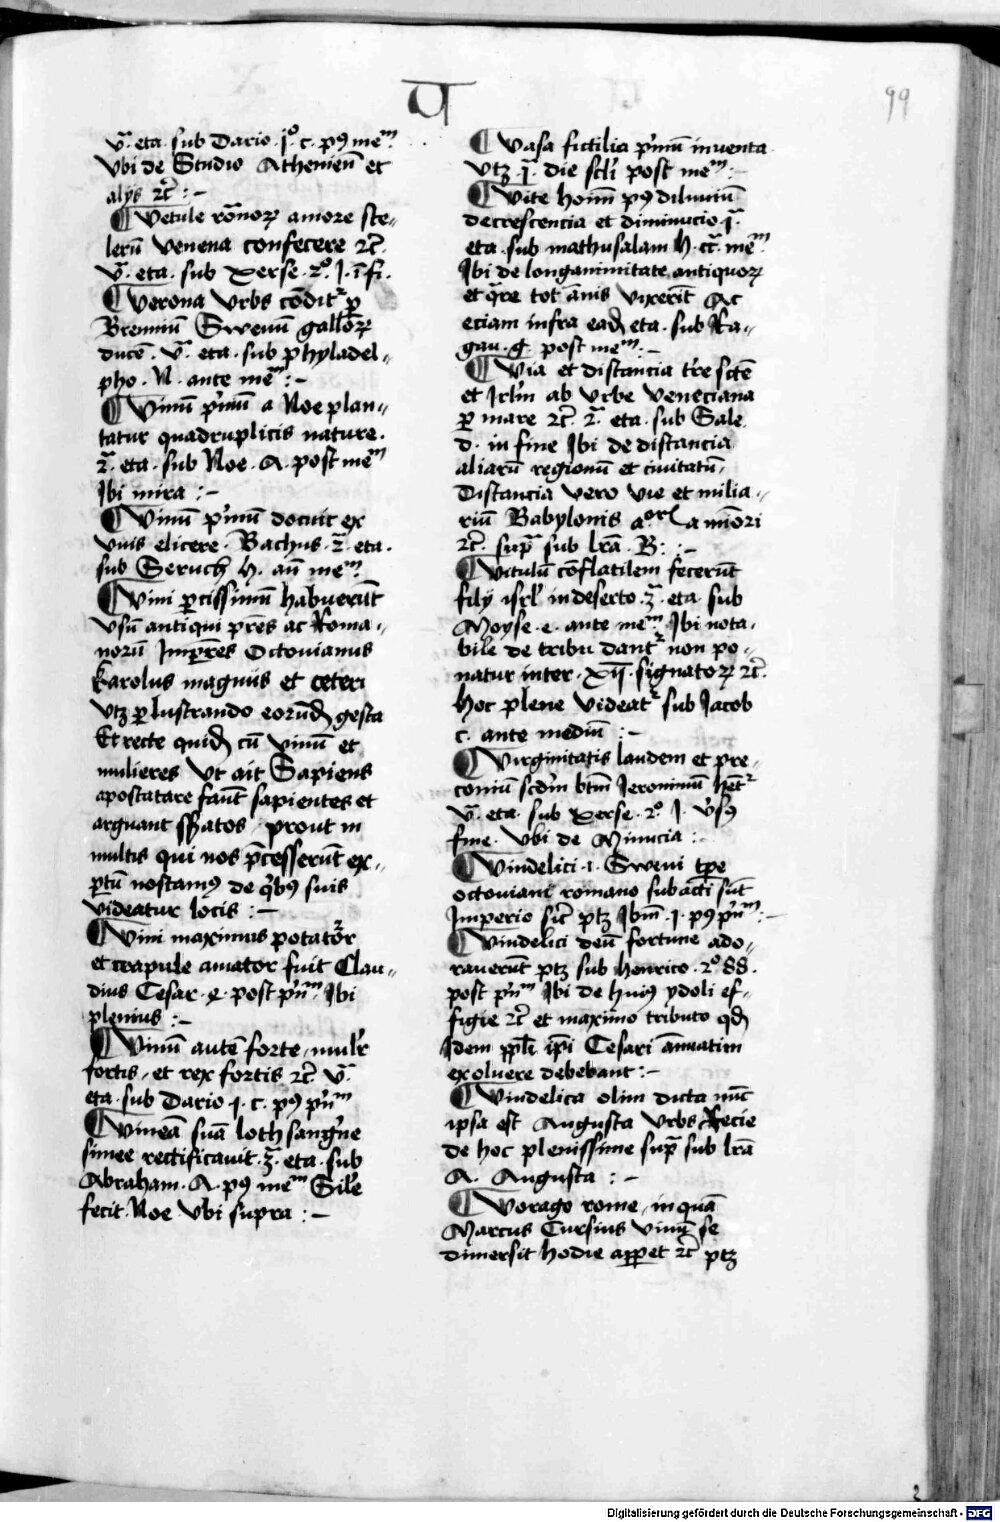 V
99
v̄. eta. sub Dario. j.º c. p9 meᵐ
Vbi de Studio Atheniēn et
alijs ꝛc̄ :~
¶ Vetule rōnoꝝ amore sce-
lerū venena confecere ꝛc̄.
v̄. eta. sub xerse. 2.º J. ī fi.
¶ Verona Vrbs cōditᷣ ꝑ
Brenniū Swenū gallōꝝ
ducē. v̄. eta. sub phyladel-
pho. N. ante mēᵐ :~
¶ Vinū pᷓmū a Noe plan-
tatur quadruplicis nature.
2.ª eta. sub Noe. A. post mēᵐ
Ibi mira :~
¶ Vinū pᷓmū docuit ex
vuis elicere. Bachus. 3.ª eta.
sub Seruch. H. añ meᵐ.
¶ Vini ꝑcissimū habuerūt
Vsū antiqui pres ac Roma-
norū Imꝑres Octouianus
Karolus magnus et ceteri
vtꝫ ꝑlustrando eorūdꝫ gesta
Et recte quidꝫ cū vinū et
mulieres Vt ait Sapiens
apostatare faūt sapientes et
arguant sēsatos prout in
multis qui nos p̄cesserūt ex-
ꝑtū nostamꝰ de qᷓbꝰ suis
videatur locis :~
¶ Vini maximus potatōr
et crapule amator fuit Clau-
dius Cesar. e. post pᷓnᵐ. Ibi
plenius :~
¶ Vinū autē forte, mulᷣr
fortis, et rex fortis ꝛc̄. v̄.
eta. sub Dario. j. c. p9 pᷓnᵐ
¶ Vineā suā loth sangᷓne
simee rectificauit. 3.ª eta. sub
Abraham. A. p9 mēᵐ Sile
fecit Noe Vbi supra :~
¶ Vasa fictilia pᷓmū inuenta
vtꝫ. j.ª die scli post meᵐ :~
¶ Vite hoīm p9 diluuiū
decrescencia et diminucio. j.ª
eta. sub mathusalam H. cᷓ. mēᵐ.
Ibi de longanimitate antiquoꝝ
et qᷓre tot annis vixerīt Ac
eciam infra eadꝫ eta. sub Ra-
gau. g. post meᵐ :~
¶ Via et distancia tᷣre scīē
et Irlᷣm ab Vrbe Veneciana
ꝑ mare ꝛc̄. 2.ª eta. sub Sale
d. in fine Ibi de distancia
aliarū regionū et ciuitatū,
Distancia vero vie et milia-
riū Babylonis a miōri
ꝛc̄. supᷓ sub lrā. B :~
¶ Vitulū cōflatilem fecerūt
filij isrl in deserto. 3.ª eta. sub
Moyse. e. ante meᵐ. Ibi nota-
bile de tribu dantᷣ non po-
natur inter. xij. signatoꝝ ꝛc̄.
hoc plene videatᷣ sub Jacob
c. ante mediū :~
¶ Virginitatis laudem et pre-
coniū scdᷣm btm Jeronimū hētᷣ
v̄. eta. sub xerse. 2.º J. vᷣsꝰ
fine. Vbi de Minucia :~
¶ Vindelici .i. Sweui tꝑe
octouiani romano subacti sūt
Imperio sic̄ ptꝫ Ibm̄. j. p9 pᷓnᵐ :~
¶ Vindelici deū fortune ado-
rauerūt ptꝫ sub henrico. 2.º dd.
post pᷓnᵐ Ibi de huiꝰ ydoli ef-
figie ꝛc̄ et maximo tributo qdꝫ
Idem pplī ipi Cesari annuatim
exoluere debebant :~
¶ Vindelica olim dicta nūc
ipsa est Augusta Vrbs Recie
de hoc plenissime supᷓ sub lrā
A. Augusta :~
¶ Vorago rome, in quā
Marcus Cursius viuū se
dimersit hodie apꝑet ꝛc̄ ptꝫ
2
Digitalisierung gefördert durch die Deutsche Forschungsgemeinschaft - DFG